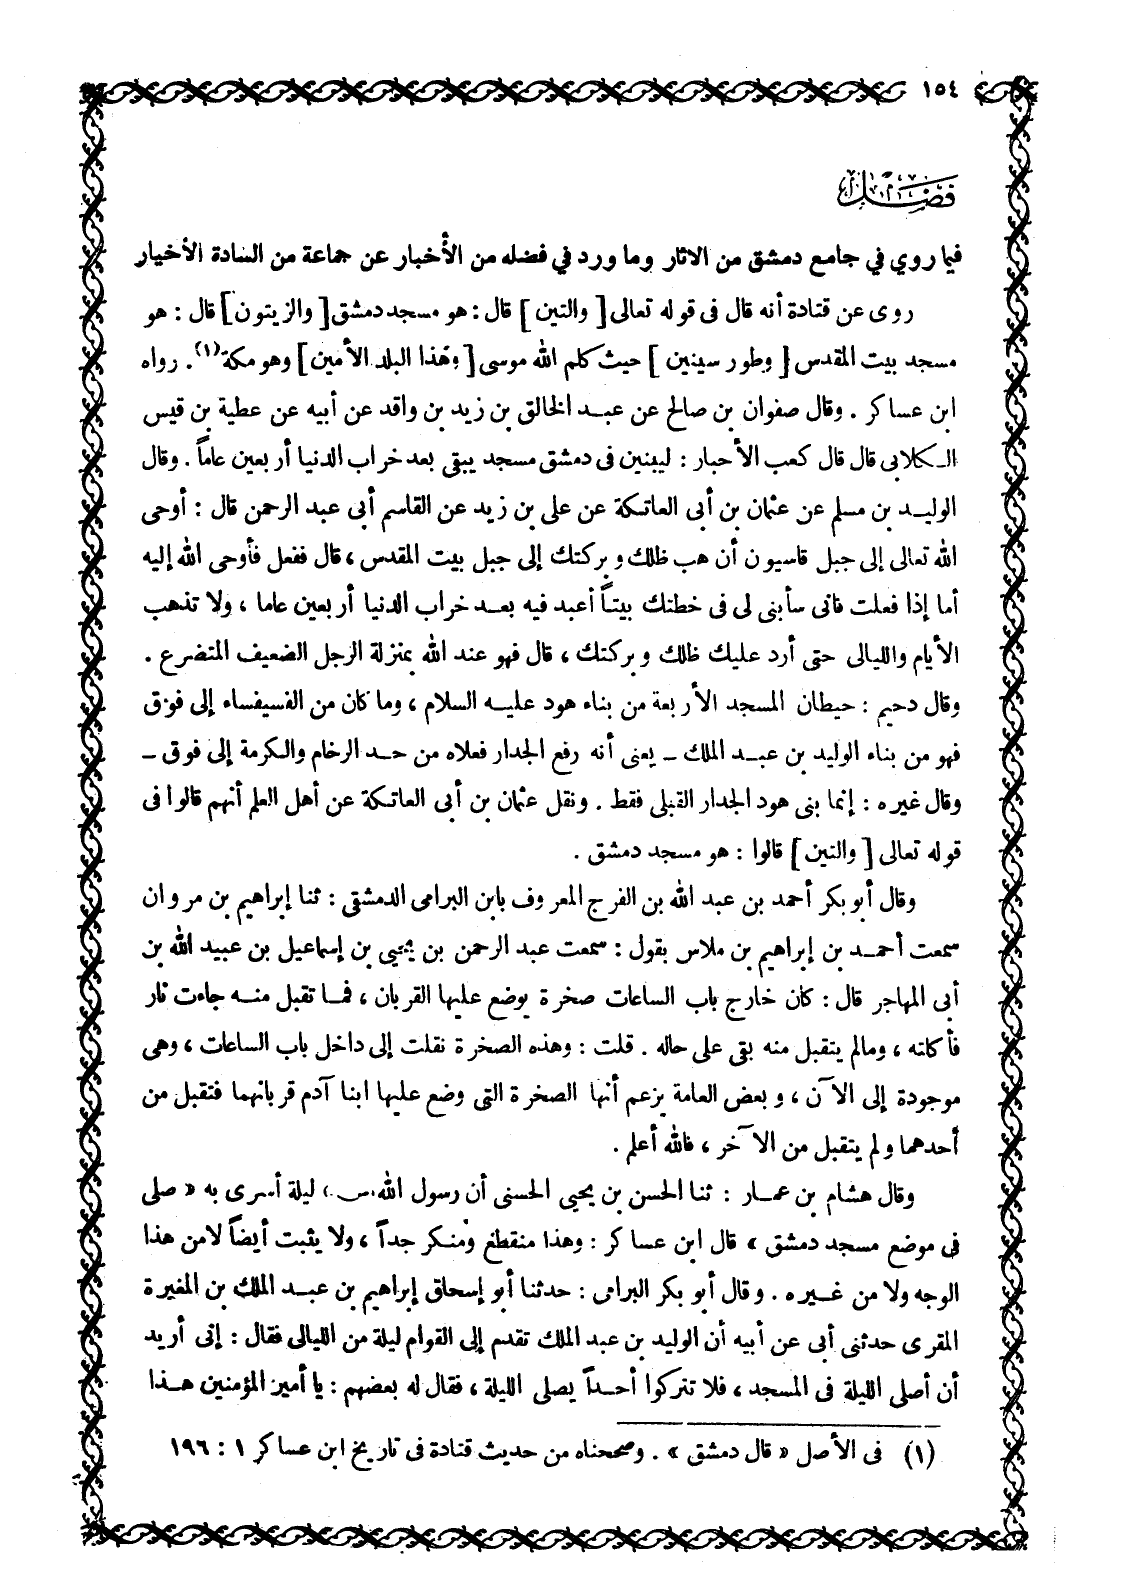 ١٥٤
فصل
فيما روي في جامع دمشق من الاثار وما ورد في فضله من الأخبار عن جماعة من السادة الأخيار
روى عن قتادة أنه قال فى قوله تعالى [ والتين ] قال : هو مسجد دمشق [ والزيتون ] قال : هو
مسجد بيت المقدس [ وطور سينين ] حيث كلم الله موسى [ وهذا البلد الأمين ] وهو مكة (١) . رواه
ابن عساكر . وقال صفوان بن صالح عن عبد الخالق بن زيد بن واقد عن أبيه عن عطية بن قيس
الكلابى قال قال كعب الأحبار : ليبنين فى دمشق مسجد يبقى بعد خراب الدنيا أربعين عاماً . وقال
الوليد بن مسلم عن عثمان بن أبى العاتكة عن على بن زيد عن القاسم أبى عبد الرحمن قال : أوحى
الله تعالى إلى جبل قاسيون أن هب ظلك وبركتك إلى جبل بيت المقدس ، قال ففعل فأوحى الله إليه
أما إذا فعلت فانى سأبنى لى فى خطتك بيتاً أعبد فيه بعد خراب الدنيا أربعين عاما ، ولا تذهب
الأيام والليالى حتى أرد عليك ظلك وبركتك ، قال فهو عند الله بمنزلة الرجل الضعيف المتضرع .
وقال دحيم : حيطان المسجد الأربعة من بناء هود عليه السلام ، وما كان من الفسيفساء إلى فوق
فهو من بناء الوليد بن عبد الملك – يعنى أنه رفع الجدار فعلاه من حد الرخام والكرمة إلى فوق –
وقال غيره : إنما بنى هود الجدار القبلى فقط . ونقل عثمان بن أبى العاتكة عن أهل العلم أنهم قالوا فى
قوله تعالى [ والتين ] قالوا : هو مسجد دمشق .
وقال أبو بكر أحمد بن عبد الله بن الفرج المعروف بابن البرامى الدمشقى : ثنا إبراهيم بن مروان
سمعت أحمد بن إبراهيم بن ملاس يقول : سمعت عبد الرحمن بن يحيى بن إسماعيل بن عبيد الله بن
أبى المهاجر قال : كان خارج باب الساعات صخرة يوضع عليها القربان ، فما تقبل منه جاءت نار
فأكلته ، ومالم يتقبل منه بقى على حاله . قلت : وهذه الصخرة نقلت إلى داخل باب الساعات ، وهى
موجودة إلى الآن ، وبعض العامة يزعم أنها الصخرة التى وضع عليها ابنا آدم قربانهما فتقبل من
أحدهما ولم يتقبل من الآخر ، فالله أعلم .
وقال هشام بن عمار : ثنا الحسن بن يحيى الحسنى أن رسول الله ليلة أسرى به « صلى
فى موضع مسجد دمشق » قال ابن عساكر : وهذا منقطع ومنكر جداً ، ولا يثبت أيضاً لامن هذا
الوجه ولا من غيره . وقال أبو بكر البرامى : حدثنا أبو إسحاق إبراهيم بن عبد الملك بن المغيرة
المقرى حدثنى أبى عن أبيه أن الوليد بن عبد الملك تقدم إلى القوام ليلة من الليالى فقال : إنى أريد
أن أصلى الليلة فى المسجد ، فلا تتركوا أحداً يصلى الليلة ، فقال له بعضهم : يا أمير المؤمنين هذا
(١) فى الأصل « قال دمشق » . وصححناه من حديث قتادة فى تاريخ ابن عساكر ١ : ١٩٦